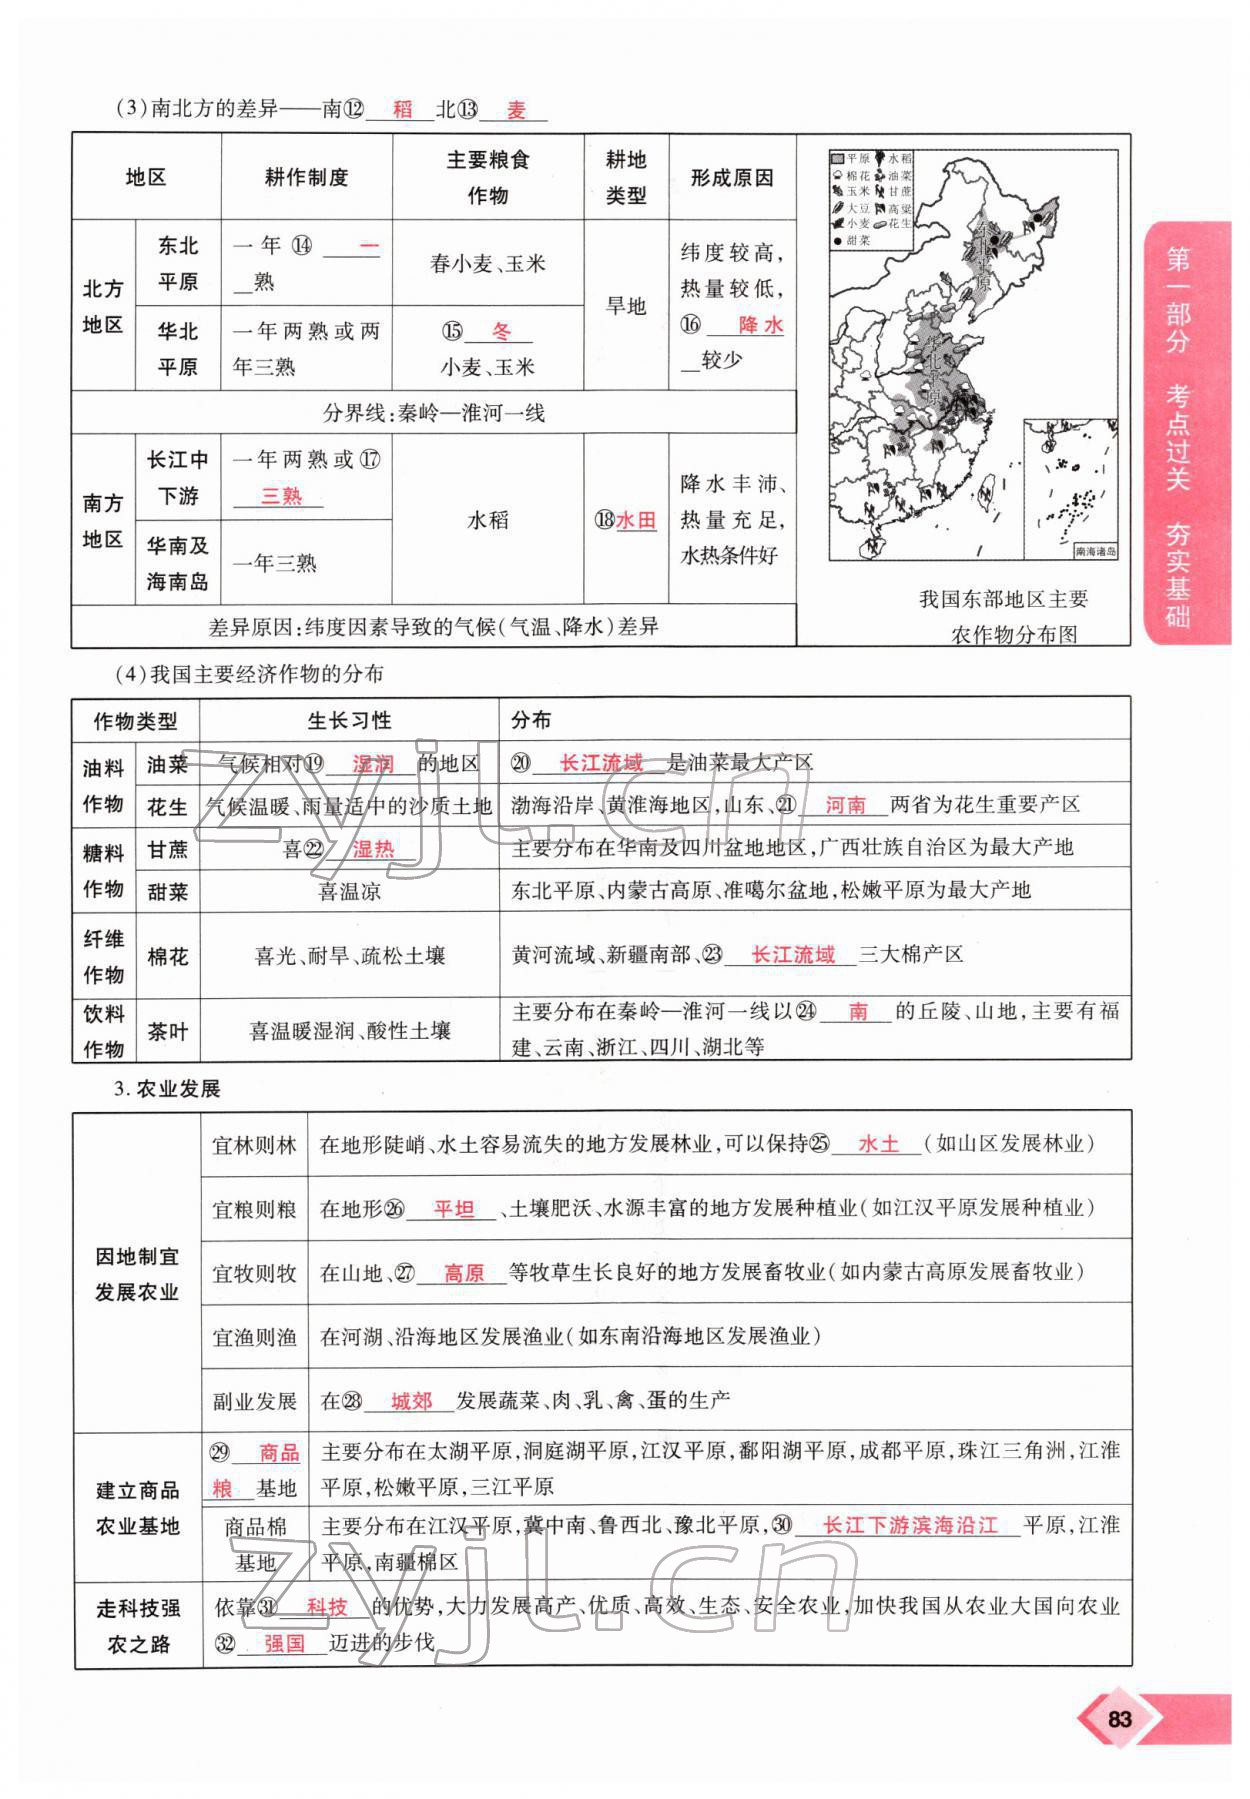 (3)南北方的差异——南⑫ 稻 北⑬ 麦
地区 耕作制度 主要粮食作物 耕地类型 形成原因
北方地区
东北平原 一年⑭ 一 熟 春小麦、玉米
华北平原 一年两熟或两年三熟 ⑮ 冬 小麦、玉米
旱地
纬度较高,热量较低,⑯ 降水 较少
分界线:秦岭—淮河一线
南方地区
长江中下游 一年两熟或⑰ 三熟
华南及海南岛 一年三熟
水稻
⑱水田
降水丰沛、热量充足,水热条件好
差异原因:纬度因素导致的气候(气温、降水)差异
平原 水稻
棉花 油菜
玉米 甘蔗
大豆 高粱
小麦 花生
甜菜
东北平原
华北平原
南海诸岛
我国东部地区主要
农作物分布图
(4)我国主要经济作物的分布
作物类型 生长习性 分布
油料作物
油菜 气候相对⑲ 湿润 的地区 ⑳ 长江流域 是油菜最大产区
花生 气候温暖、雨量适中的沙质土地 渤海沿岸、黄淮海地区,山东、㉑ 河南 两省为花生重要产区
糖料作物
甘蔗 喜㉒ 湿热 主要分布在华南及四川盆地地区,广西壮族自治区为最大产地
甜菜 喜温凉 东北平原、内蒙古高原、准噶尔盆地,松嫩平原为最大产地
纤维作物
棉花 喜光、耐旱、疏松土壤 黄河流域、新疆南部、㉓ 长江流域 三大棉产区
饮料作物
茶叶 喜温暖湿润、酸性土壤 主要分布在秦岭—淮河一线以㉔ 南 的丘陵、山地,主要有福
建、云南、浙江、四川、湖北等
3. 农业发展
因地制宜发展农业
宜林则林 在地形陡峭、水土容易流失的地方发展林业,可以保持㉕ 水土 (如山区发展林业)
宜粮则粮 在地形㉖ 平坦 、土壤肥沃、水源丰富的地方发展种植业(如江汉平原发展种植业)
宜牧则牧 在山地、㉗ 高原 等牧草生长良好的地方发展畜牧业(如内蒙古高原发展畜牧业)
宜渔则渔 在河湖、沿海地区发展渔业(如东南沿海地区发展渔业)
副业发展 在㉘ 城郊 发展蔬菜、肉、乳、禽、蛋的生产
建立商品农业基地
㉙ 商品粮 基地 主要分布在太湖平原,洞庭湖平原,江汉平原,鄱阳湖平原,成都平原,珠江三角洲,江淮
平原,松嫩平原,三江平原
商品棉基地 主要分布在江汉平原,冀中南、鲁西北、豫北平原,㉚ 长江下游滨海沿江 平原,江淮
平原,南疆棉区
走科技强农之路
依靠㉛ 科技 的优势,大力发展高产、优质、高效、生态、安全农业,加快我国从农业大国向农业
㉜ 强国 迈进的步伐
第一部分 考点过关 夯实基础
83
zyjl.cn
zyjl.cn